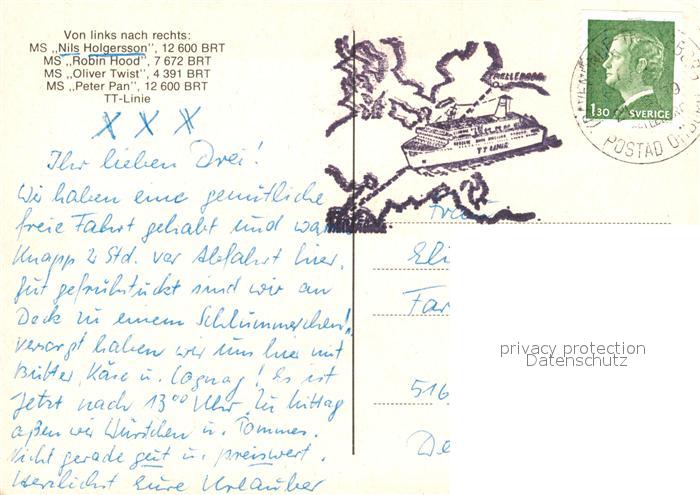 Von links nach rechts:
MS „Nils Holgersson", 12 600 BRT
MS „Robin Hood", 7 672 BRT
MS „Oliver Twist", 4 391 BRT
MS „Peter Pan", 12 600 BRT
TT-Linie
X X X
Ihr lieben Drei!
Wir haben eine gemütliche
freie Fahrt gehabt und war
knapp 2 Std. vor Abfahrt hier.
Gut gefrühstückt sind wir an
Deck zu einem Schlummerchen!
versorgt haben wir uns hier mit
Butter, Käse u. Cognag! Es ist
jetzt nach 13⁰⁰ Uhr. Zu Mittag
aßen wir Würstchen u. Pommes.
Nicht gerade gut u. preiswert.
Herzlichst Eure Urlauber
TRELLEBORG
TT LINIE
1.30 SVERIGE
POSTAD OMBORD
Frau
Eli
Far
516
De
privacy protection
Datenschutz